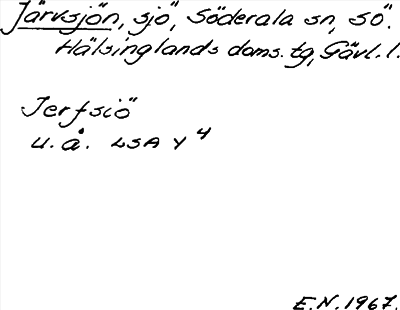 Järvsjön, sjö, Söderala sn, SÖ.
Hälsinglands doms. tg, Gävl. l.
Jerfsiö
u. å. LSA Y 4
E.N. 1967.